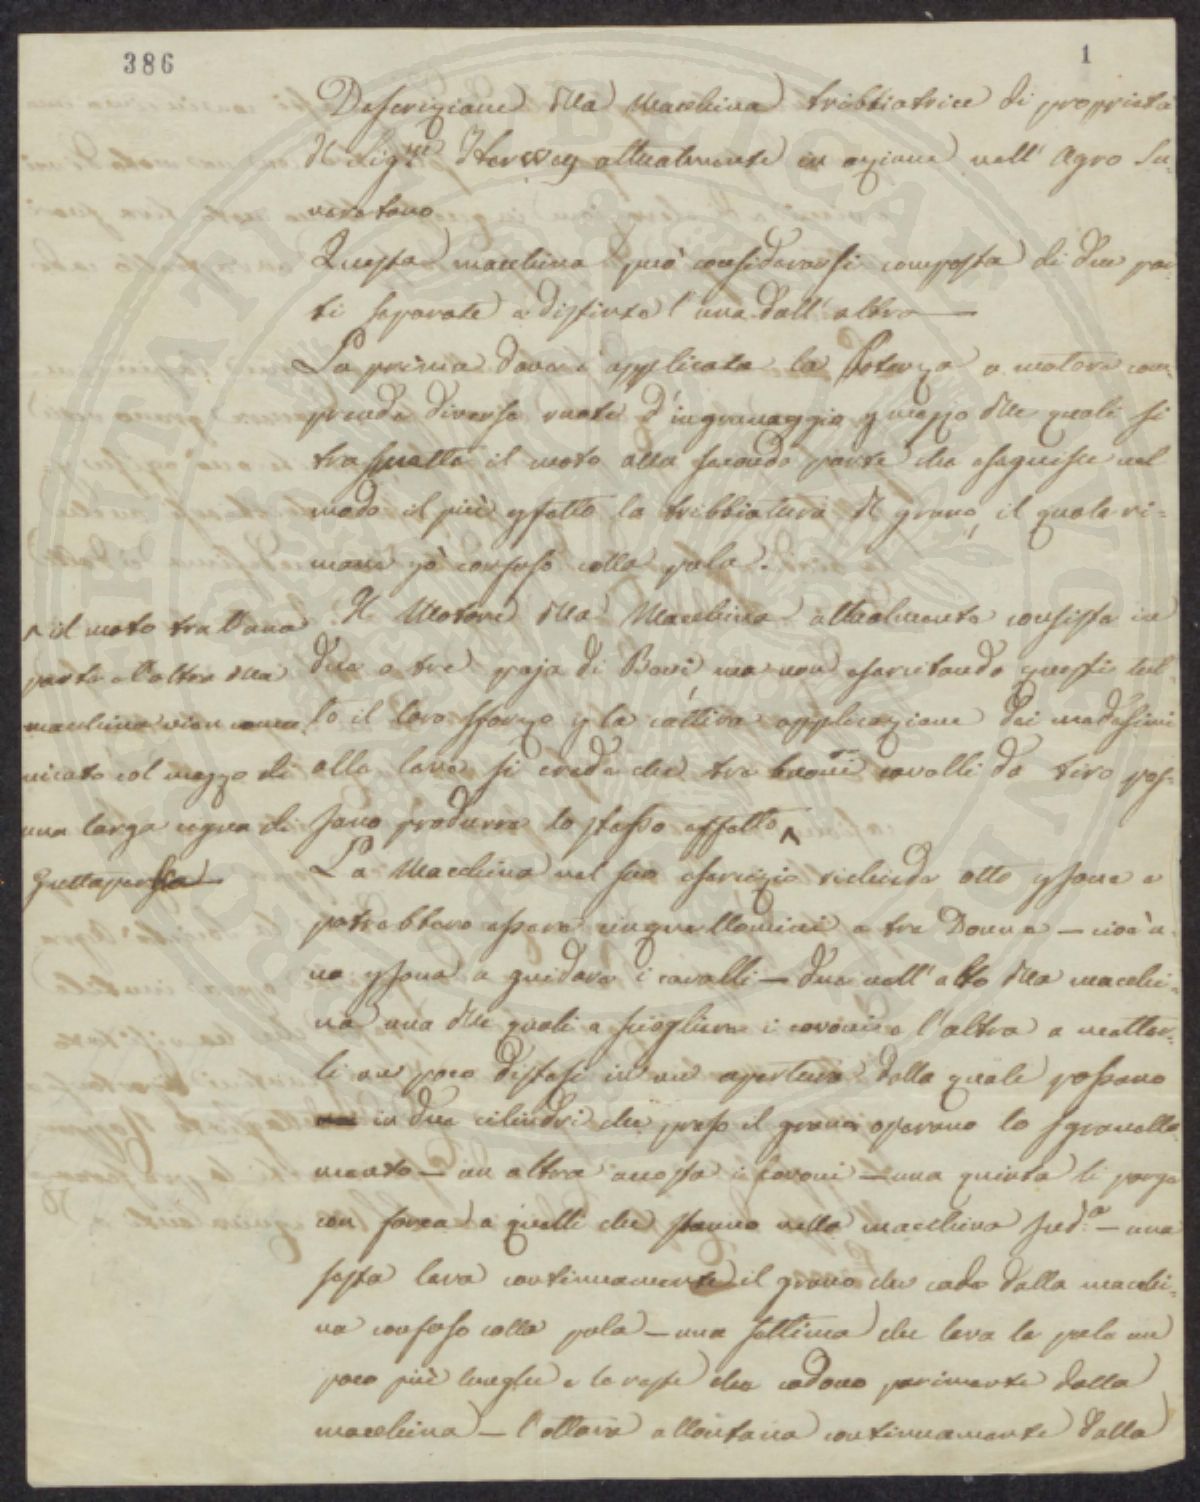 386
1
Descrizione della Macchina tribbiatrice di proprietà
del Sig.re Herssey attualmente in azione nell' Agro Su-
veretano
Questa macchina può considerarsi composta di due par-
ti separate e distinte l'una dall' altra —
La prima dove è applicata la forza o motore com-
prende diverse ruote d'ingranaggio p mezzo delle quali si
trasmette il moto alla seconda parte che eseguisce nel
modo il più pfetto la tribbiatura del grano, il quale ri-
mane pò confuso colla pula.
Il Motore della Macchina attualmente consiste in
due o tre paja di Bovi ma non esercitando questi tut-
to il loro sforzo p la cattiva applicazione dei medesimi
alla leva si crede che tre buoni cavalli da tiro pos-
sano produrre lo stesso effetto ^
^ il moto tra l'una
parte e l'altra della
macchina vien comu-
nicato col mezzo di
una larga cigna di
Guttaperka —
La Macchina nel suo esercizio richiede otto psone e
potrebbero essere cinque Uomini e tre Donne — cioè u-
na psona a guidare i cavalli — due nell' alto della macchi-
na una delle quali a sciogliere i covoni e l'altra a metter-
li un poco distesi in un apertura dalla quale passano
in due cilindri che preso il grano operano lo sgranella-
mento — un altra accosta i covoni — una quinta li porge
con forca a quelli che stanno nella macchina sud.a — una
sesta leva continuamente il grano che cade dalla macchi-
na confuso colla pula — una settima che leva le pale un
poco più lunghe e le reste che cadono parimente dalla
macchina — l'ottava allontana continuamente dalla